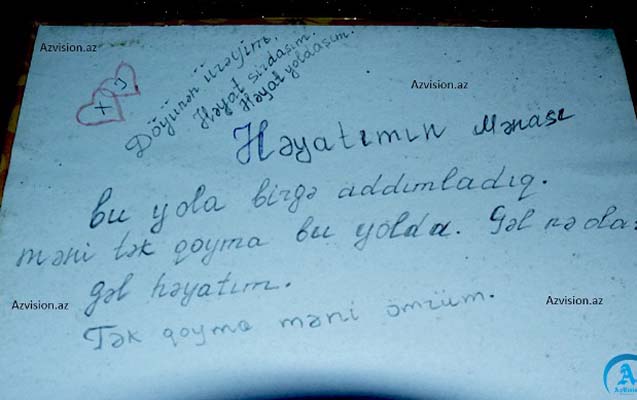 Azvision.az
Azvision.az
X J
Döyünən ürəyim.
Həyat sirdaşım.
Həyat yoldaşım.
Həyatımın Mənası
bu yola birgə addımladıq.
məni tək qoyma bu yolda. Gəl nə olar
gəl həyatım.
Azvision.az
Azvision.az
Tək qoyma məni ömrüm.